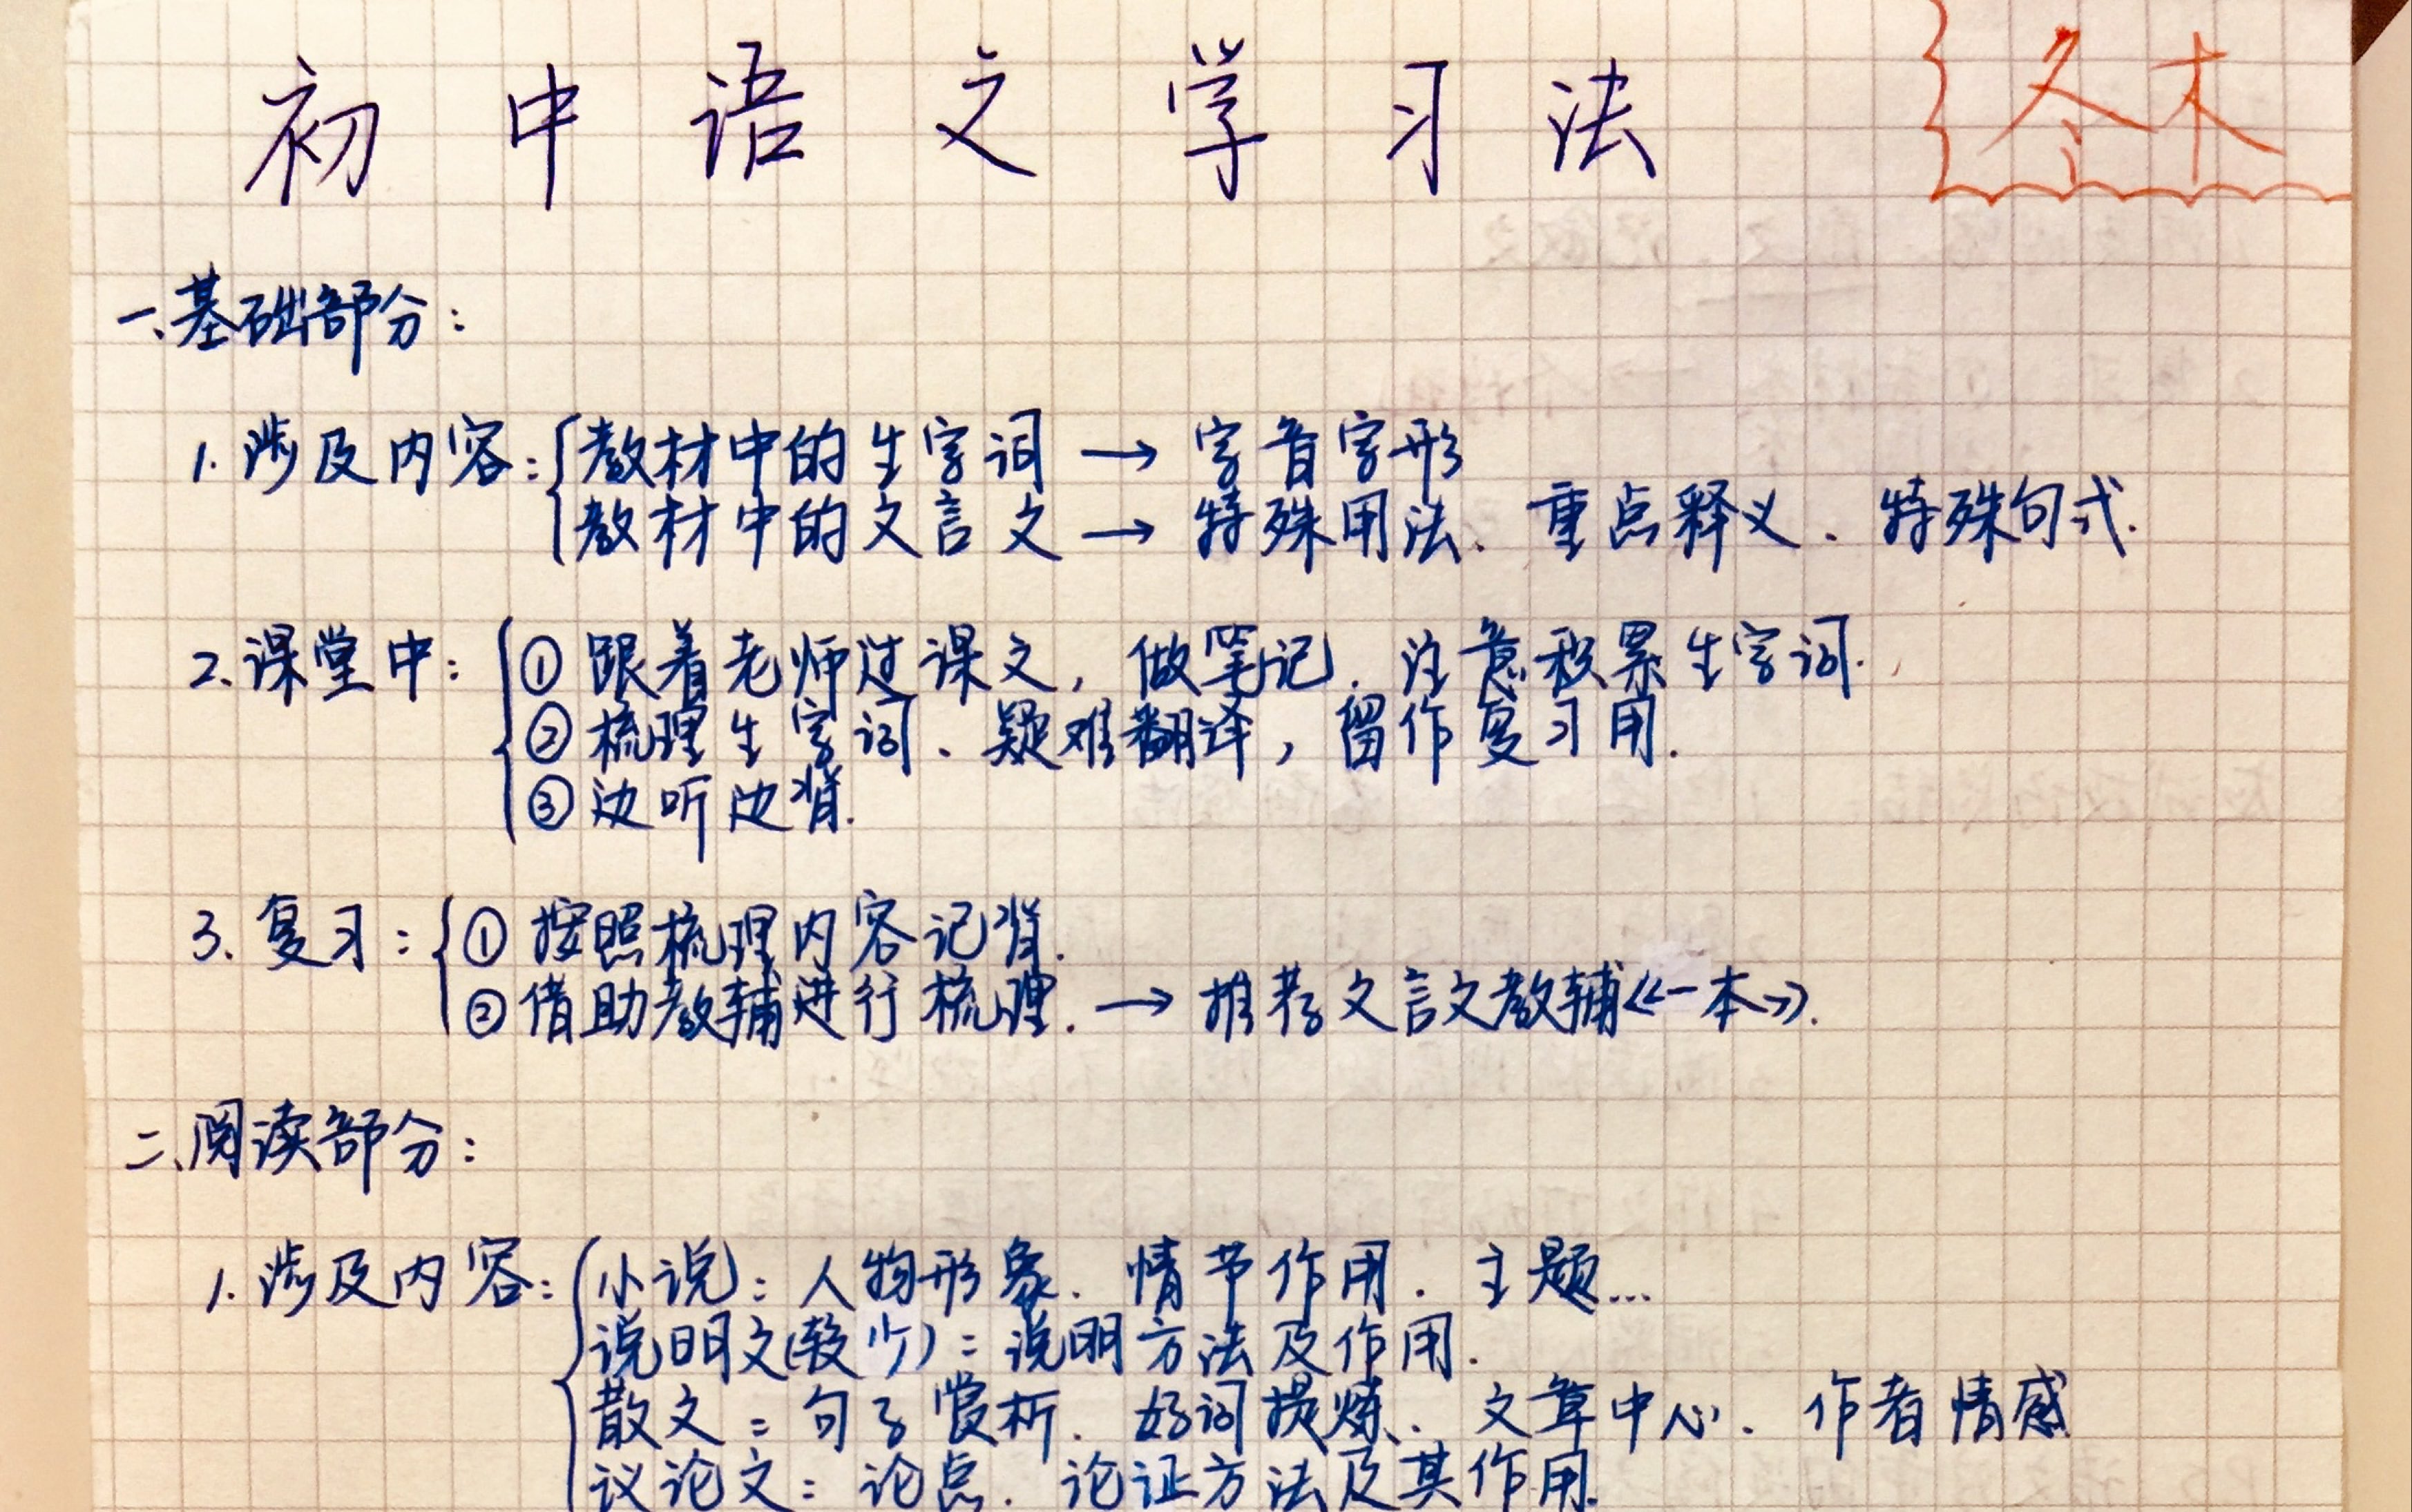 初中语文学习法
冬木
一、基础部分：
1. 涉及内容：教材中的生字词 → 字音字形
教材中的文言文 → 特殊用法、重点释义、特殊句式.
2. 课堂中：① 跟着老师过课文，做笔记，注意积累生字词.
② 梳理生字词、疑难翻译，留作复习用.
③ 边听边背.
3. 复习：① 按照梳理内容记背.
② 借助教辅进行梳理. → 推荐文言文教辅《一本》.
二、阅读部分：
1. 涉及内容：小说：人物形象、情节作用、主题...
说明文(较少)：说明方法及作用.
散文：句子赏析、好词提炼、文章中心、作者情感
议论文：论点、论证方法及其作用.